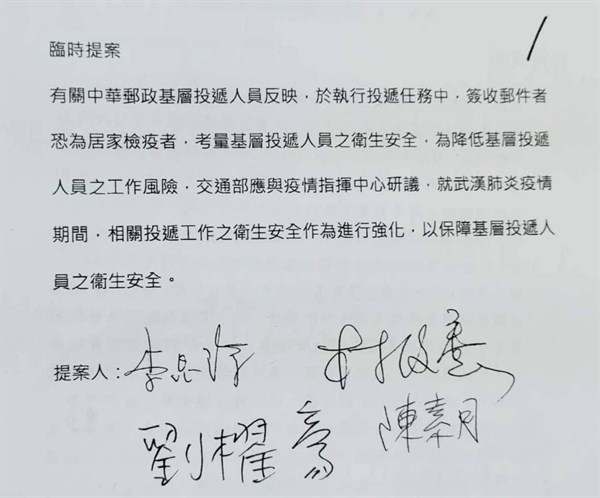 1
臨時提案
有關中華郵政基層投遞人員反映，於執行投遞任務中，簽收郵件者
恐為居家檢疫者，考量基層投遞人員之衛生安全，為降低基層投遞
人員之工作風險，交通部應與疫情指揮中心研議，就武漢肺炎疫情
期間，相關投遞工作之衛生安全作為進行強化，以保障基層投遞人
員之衛生安全。
提案人：李昆澤 林俊憲
劉櫂豪 陳素月